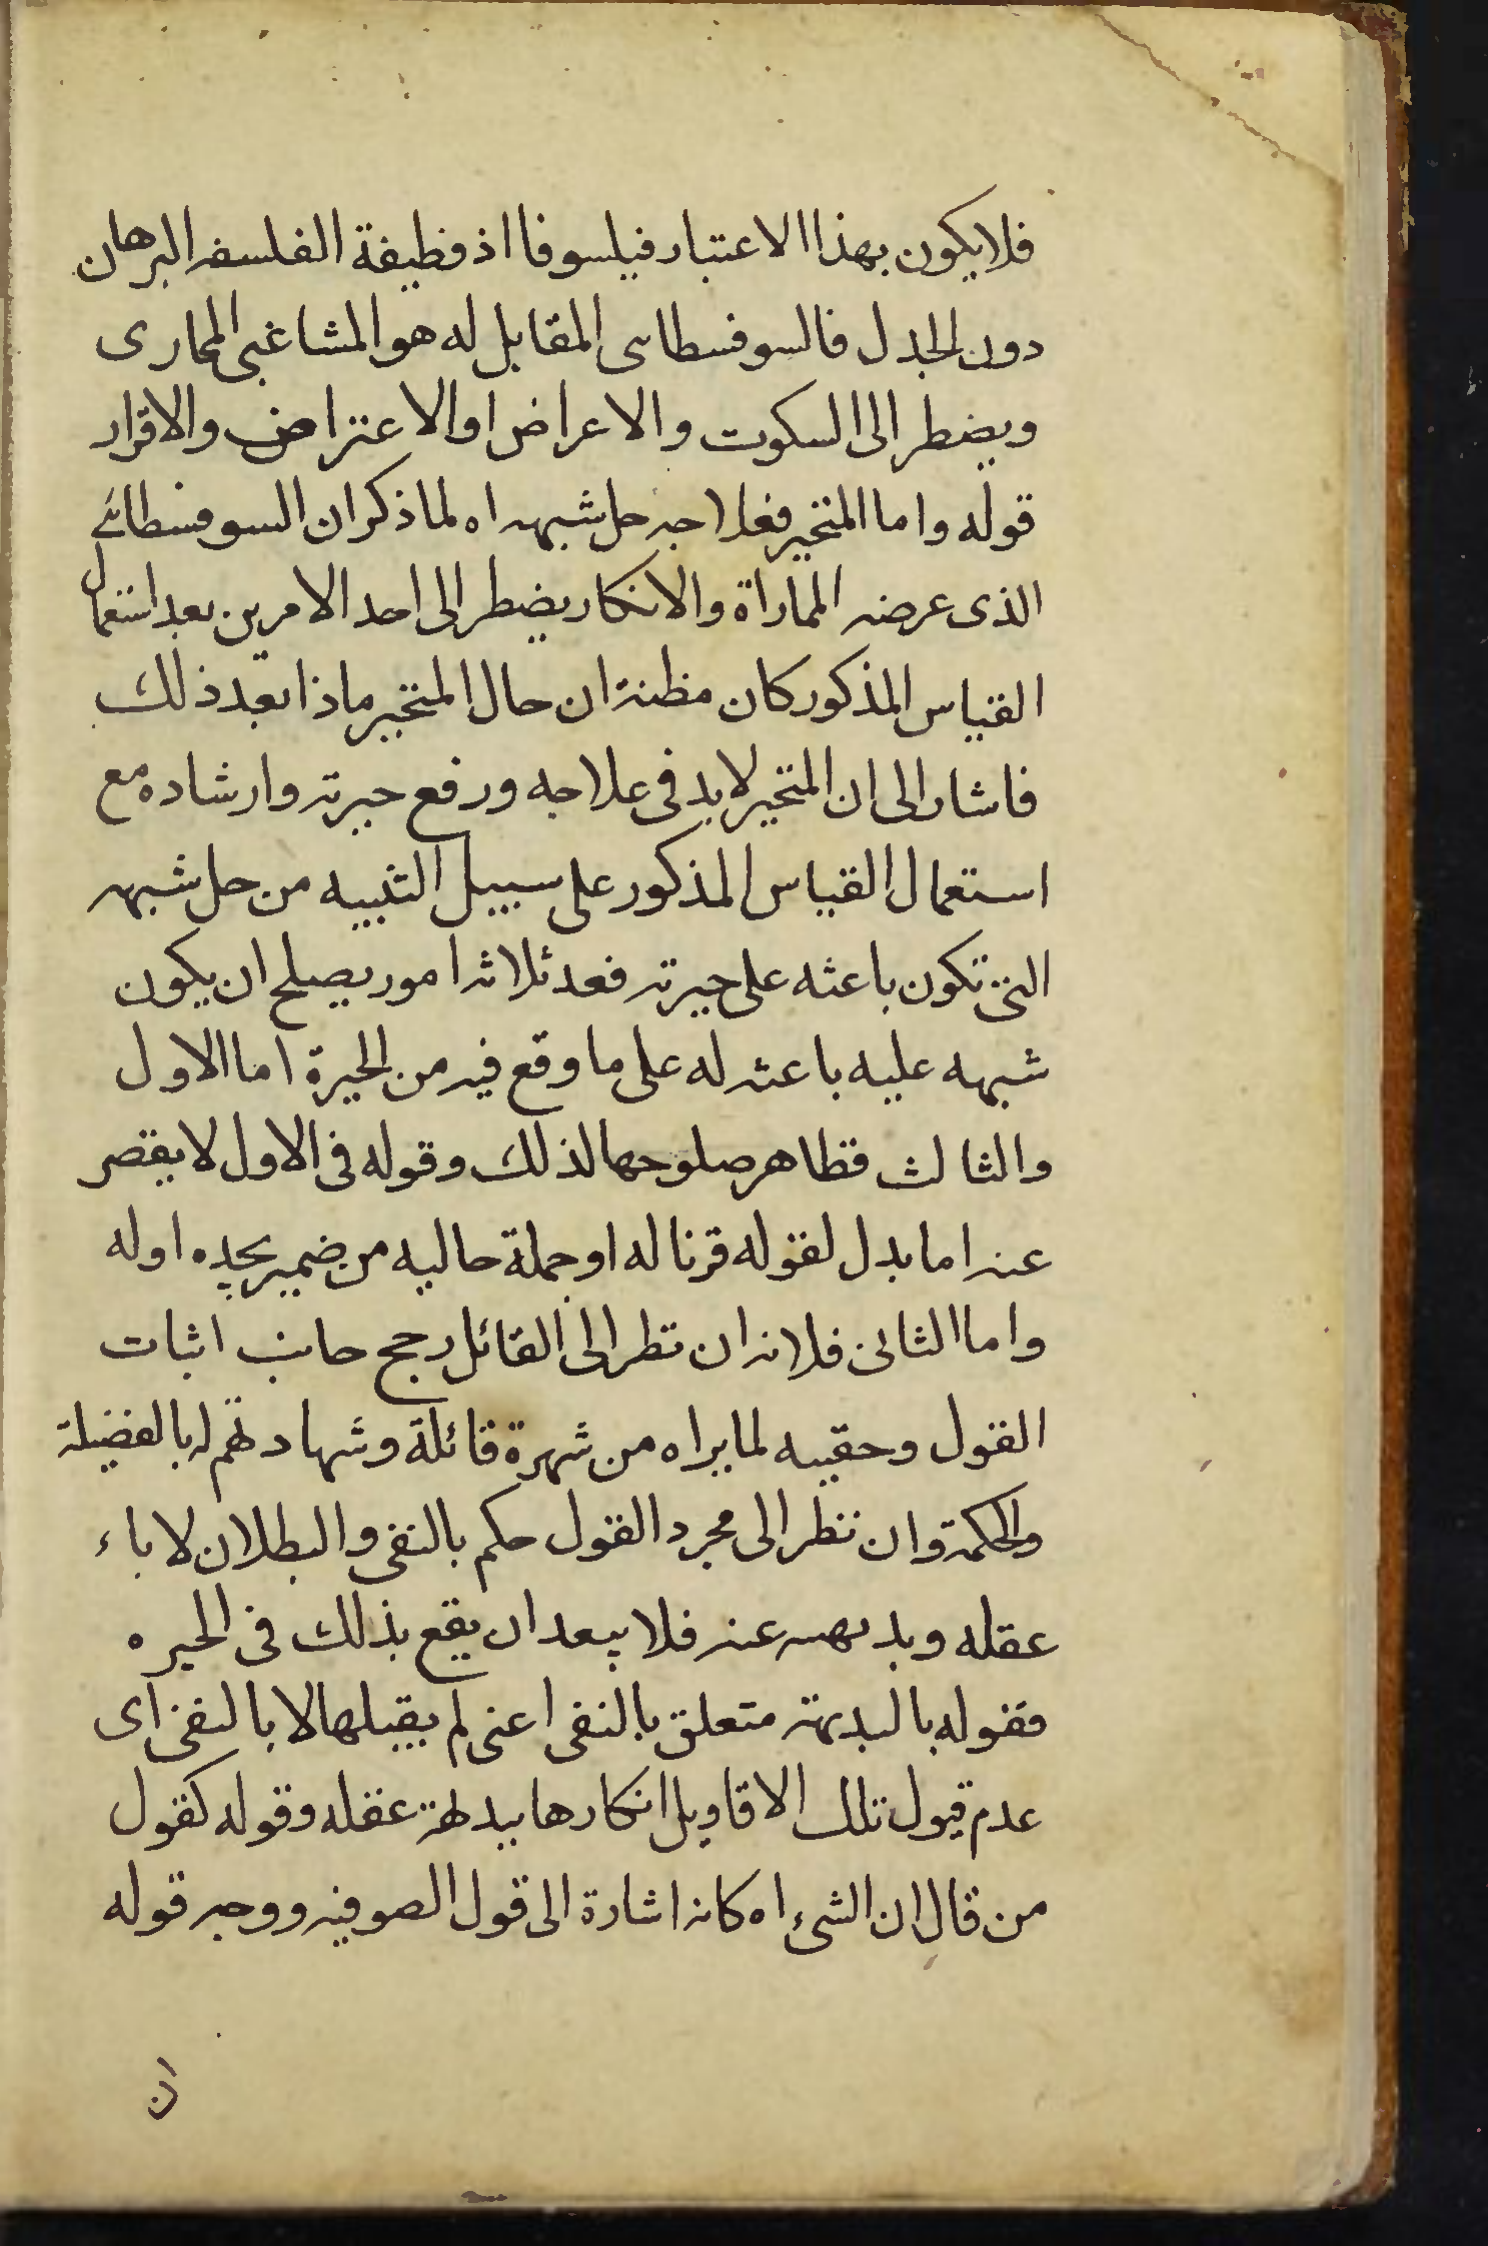 فلا يكون بهذا الاعتبار فيلسوفا اذ فظيفة الفلسفه البرهان
دون الجدل فالسوفسطاىى المقابل له هو المشاغبى الممارى
ويضطر الى السكوت والاعراض او الاعتراض والاقرار
قوله واما المتحير فعلاجه حل شبهه اه لما ذكر ان السوفسطائى
الذى عرضه المماراة والانكار يضطر الى احد الامرين بعد استعمال
القياس المذكور كان مظنة ان حال المتحير ماذا بعد ذلك
فاشار الى ان المتحير لابد فى علاجه ورفع حيرته وارشاده مع
استعمال القياس المذكور على سبيل التنبيه من حل شبهه
التى تكون باعثه على حيرته فعد ثلاثه امور يصلح ان يكون
شبهه عليه باعثه له على ما وقع فيه من الحيرة اما الاول
والثالث فظاهر صلوحها لذلك وقوله فى الاول لا يقصر
عنه اما بدل لقوله قرنا له او جملة حاليه من ضمير يجده اوله
واما الثانى فلانه ان نظر الى القائل رجح جانب اثبات
القول وحقيه لما يراه من شهرة قائلة وشهادتهم له بالفضيلة
والحكمة وان نظر الى مجرد القول حكم بالنفى والبطلان لاباء
عقله وبديهه عنه فلا يبعد ان يقع بذلك فى الحيره
فقوله بالبديهة متعلق بالنفى اعنى لم يقبلها الا بالنفى اى
عدم قبول تلك الاقاويل انكارها ببداهة عقله وقوله كقول
من قال ان الشىء اه كانه اشارة الى قول الصوفيه ووجه قوله
ان